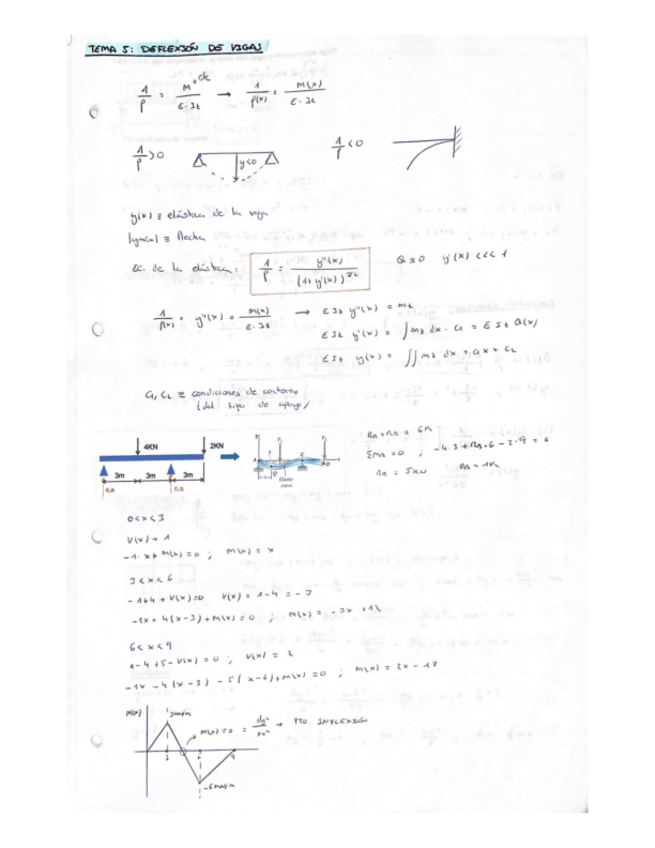 TEMA 5: DEFLEXIÓN DE VIGAS
1/ρ = M/(E·Iz) → 1/ρ(x) = M(x)/(E·Iz)
1/ρ > 0
y<0
1/ρ < 0
y(x) ≡ elástica de la viga
|ymax| ≡ flecha
Ec. de la elástica: 1/ρ = y''(x)/(1+y'(x))^3/2
θ≈0 y'(x) <<< 1
1/ρ(x) = y''(x) = M(x)/(E·Iz) → E Iz y''(x) = Mz
E Iz y'(x) = ∫Mz dx + C1 = E Iz θ(x)
E Iz y(x) = ∬ Mz dx + C1x + C2
C1, C2 ≡ condiciones de contorno
(del tipo de apoyo)
4KN
2KN
3m
3m
3m
RA
RB
RA+RB = 6K
ΣMA = 0 ; -4·3+RB·6-2·9 = 0
RB = 5KN RA = 1K
0<x<3
V(x) = 1
-1·x+M(x)=0 ; M(x) = x
3<x<6
-1+4+V(x)=0 V(x) = 1-4 = -3
-1x+4(x-3)+M(x) = 0 ; M(x) = -3x+12
6<x<9
1-4+5-V(x) = 0 ; V(x) = 2
-1x-4(x-3)-5(x-6)+M(x) = 0 ; M(x) = 2x-18
M(x)
M(x)=0 = dy²/dx² → PTO. INFLEXIÓN